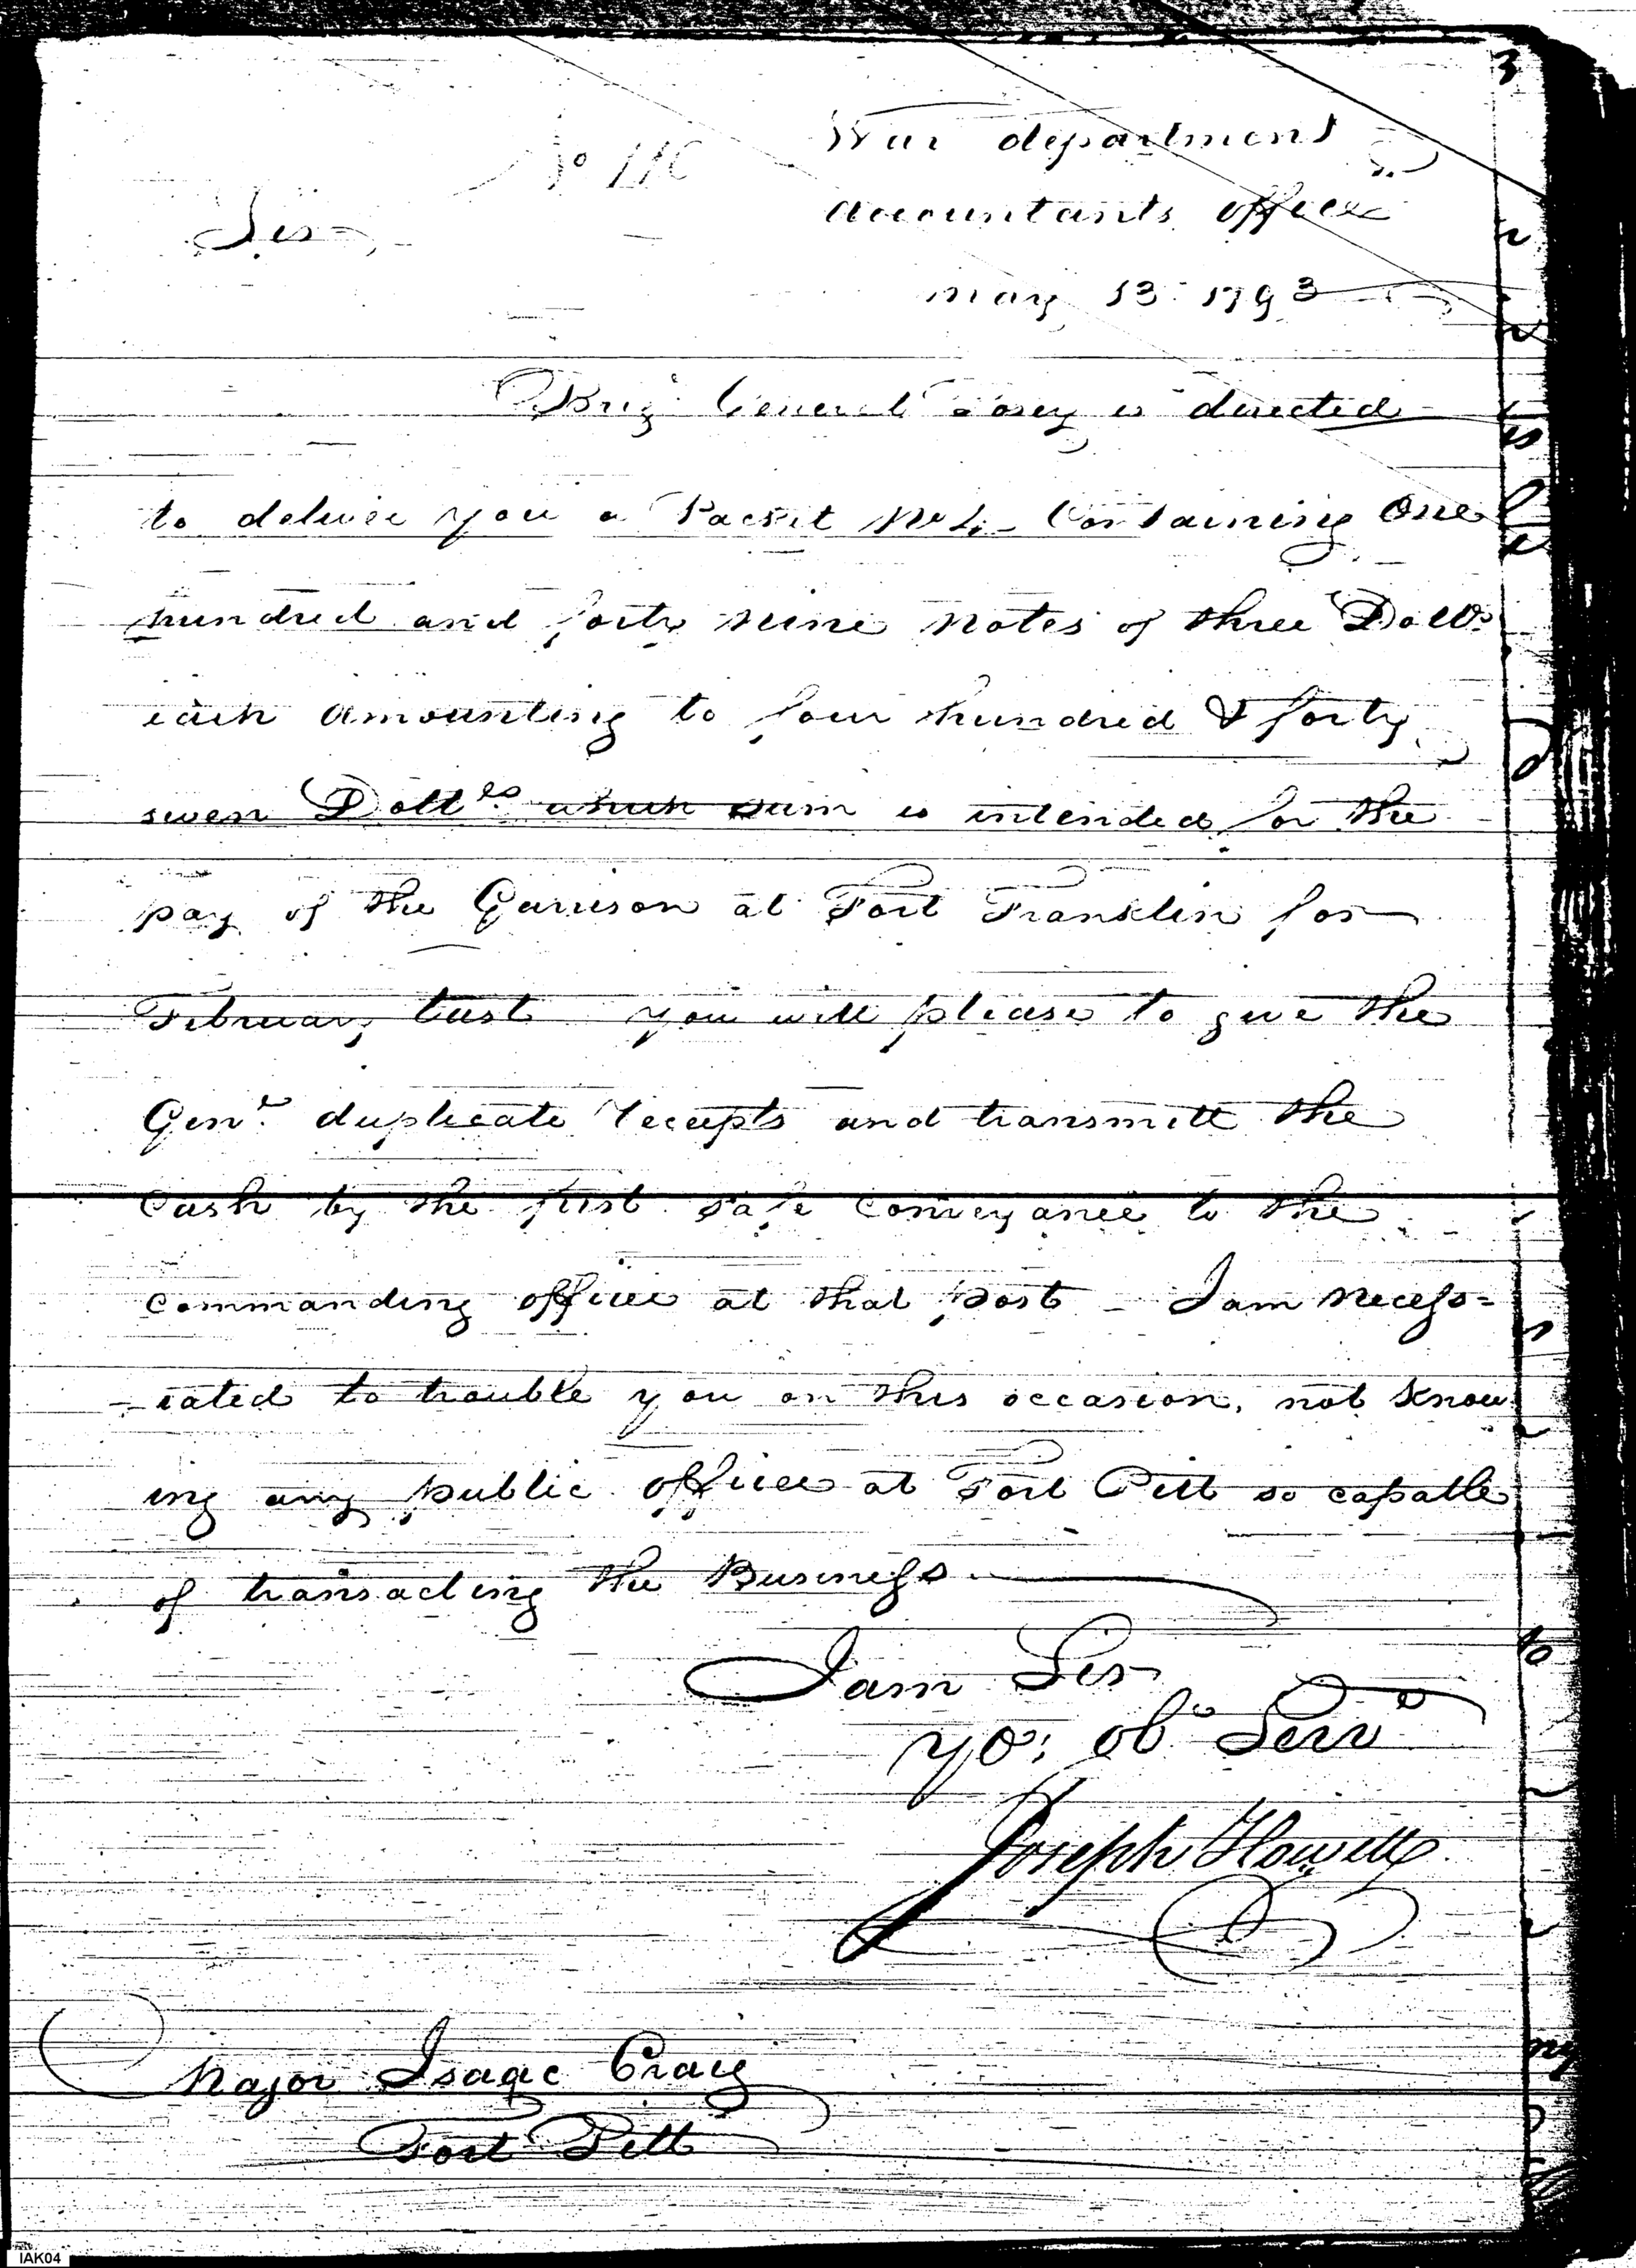 3
War department
No 110
Accountants office
Sir,
May 13: 1793
Brig. General Posey is directed
to deliver you a Packet No 4 - Containing One
hundred and forty nine Notes of three Dolls
each amounting to four hundred & forty
seven Dollrs which sum is intended for the
pay of the Garrison at Fort Franklin for
February last you will please to give the
Genl. duplicate receipts and transmitt the
Cash by the first safe conveyance to the
commanding officer at that post - I am necess=
-iated to trouble you on this occasion, not know
ing any public officer at Fort Pitt so capable
of transacting the Business.
I am Sir
yo: obt Servt
Joseph Howell
Major Isaac Craig
Fort Pitt
IAK04